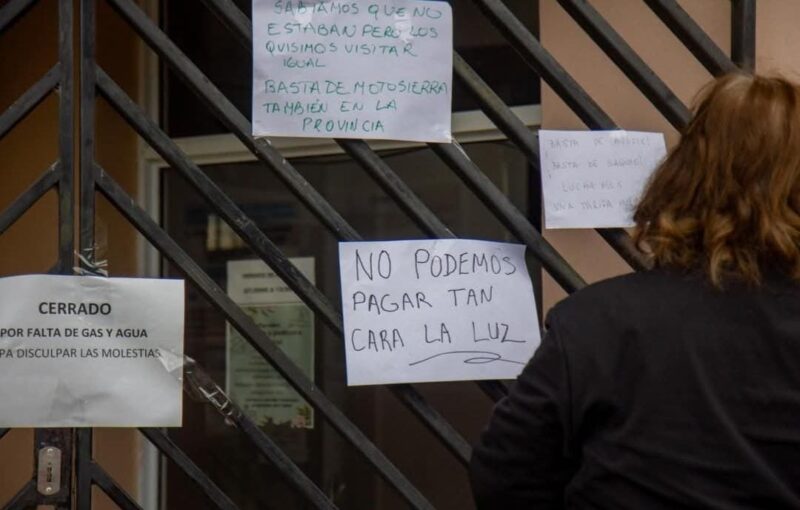 SABÍAMOS QUE NO
ESTABAN PERO LOS
QUISIMOS VISITAR
IGUAL
BASTA DE MOTOSIERRA
TAMBIÉN EN LA
PROVINCIA
BASTA DE
BASTA DE
LUCHAMOS
UNA TARIFA
NO PODEMOS
PAGAR TAN
CARA LA LUZ
CERRADO
POR FALTA DE GAS Y AGUA
PA DISCULPAR LAS MOLESTIAS